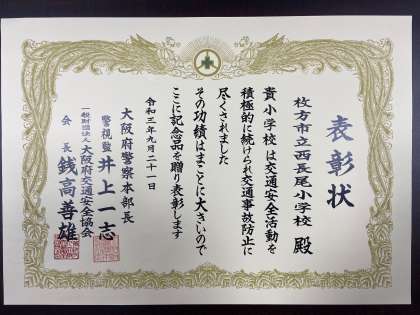 表彰状
枚方市立西長尾小学校 殿
貴小学校は交通安全活動を
積極的に続けられ交通事故防止に
尽くされました
その功績はまことに大きいので
ここに記念品を贈り表彰します
令和三年九月二十一日
大阪府警察本部長
警視監 井上一志
一般財団法人 大阪府交通安全協会
会長 銭高善雄